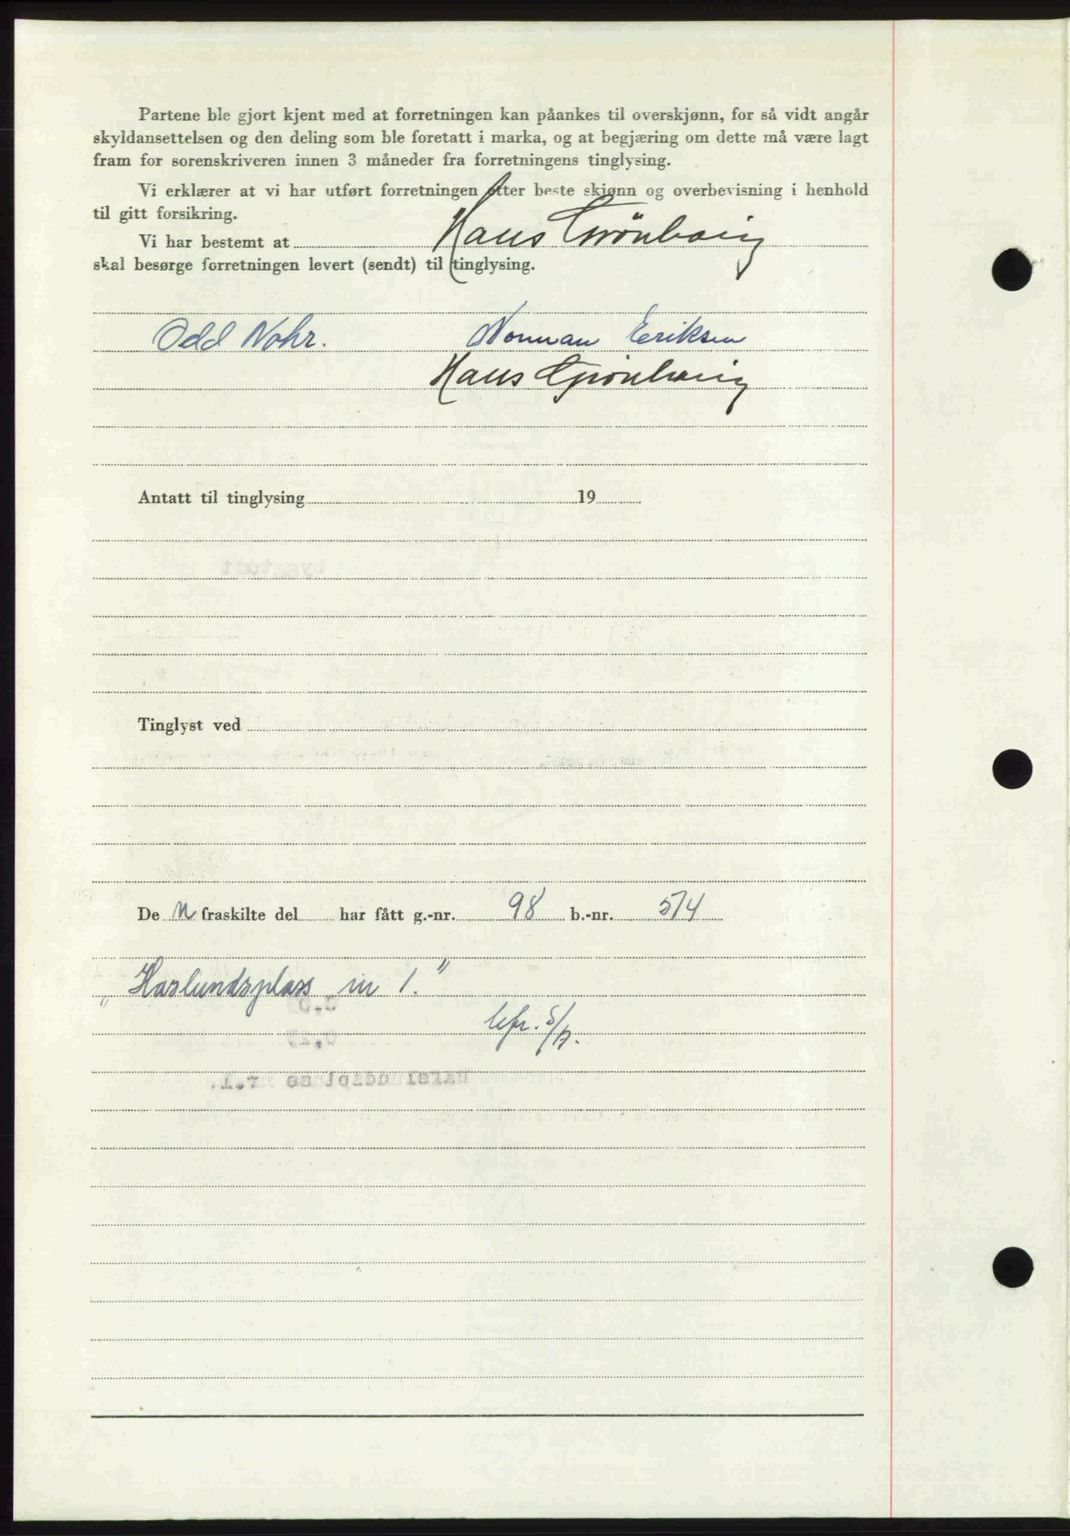 Partene ble gjort kjent med at forretningen kan påankes til overskjønn, for så vidt angår
skyldansettelsen og den deling som ble foretatt i marka, og at begjæring om dette må være lagt
fram for sorenskriveren innen 3 måneder fra forretningens tinglysing.
Vi erklærer at vi har utført forretningen etter beste skjønn og overbevisning i henhold
til gitt forsikring.
Vi har bestemt at Hans Grönbaig
skal besørge forretningen levert (sendt) til tinglysing.
Odd Nohr. Norman Eriksen
Hans Grönbaig
Antatt til tinglysing 19
Tinglyst ved
De n fraskilte del har fått g.-nr. 98 b.-nr. 574
"Haslundsplass nr 1."